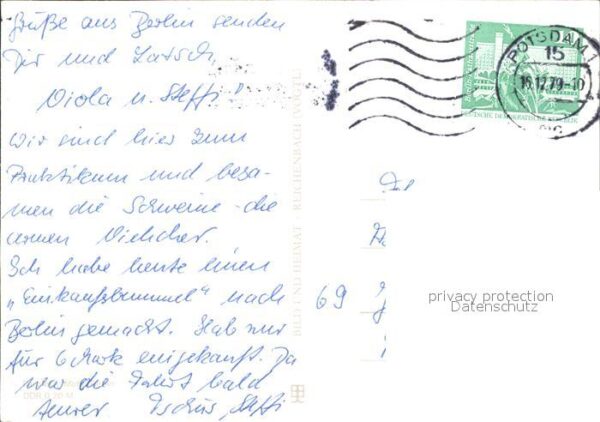 Grüße aus Berlin senden
Dir und Latsch
Viola u. Steffi!
Wir sind hier zum
Praktikum und besa-
men die Schweine - die
armen Viehcher.
Ich habe heute einen
„Einkaufsbummel" nach
Berlin gemacht. Hab nur
für 6 Mark eingekauft. Da
war die Fahrt bald
teurer. Tschüs, Steffi
DDR 0,20 M
BILD UND HEIMAT REICHENBACH (VOGTL)
POTSDAM 1
15
16.12.79-10
DEUTSCHE DEMOKRATISCHE REPUBLIK
69
privacy protection
Datenschutz